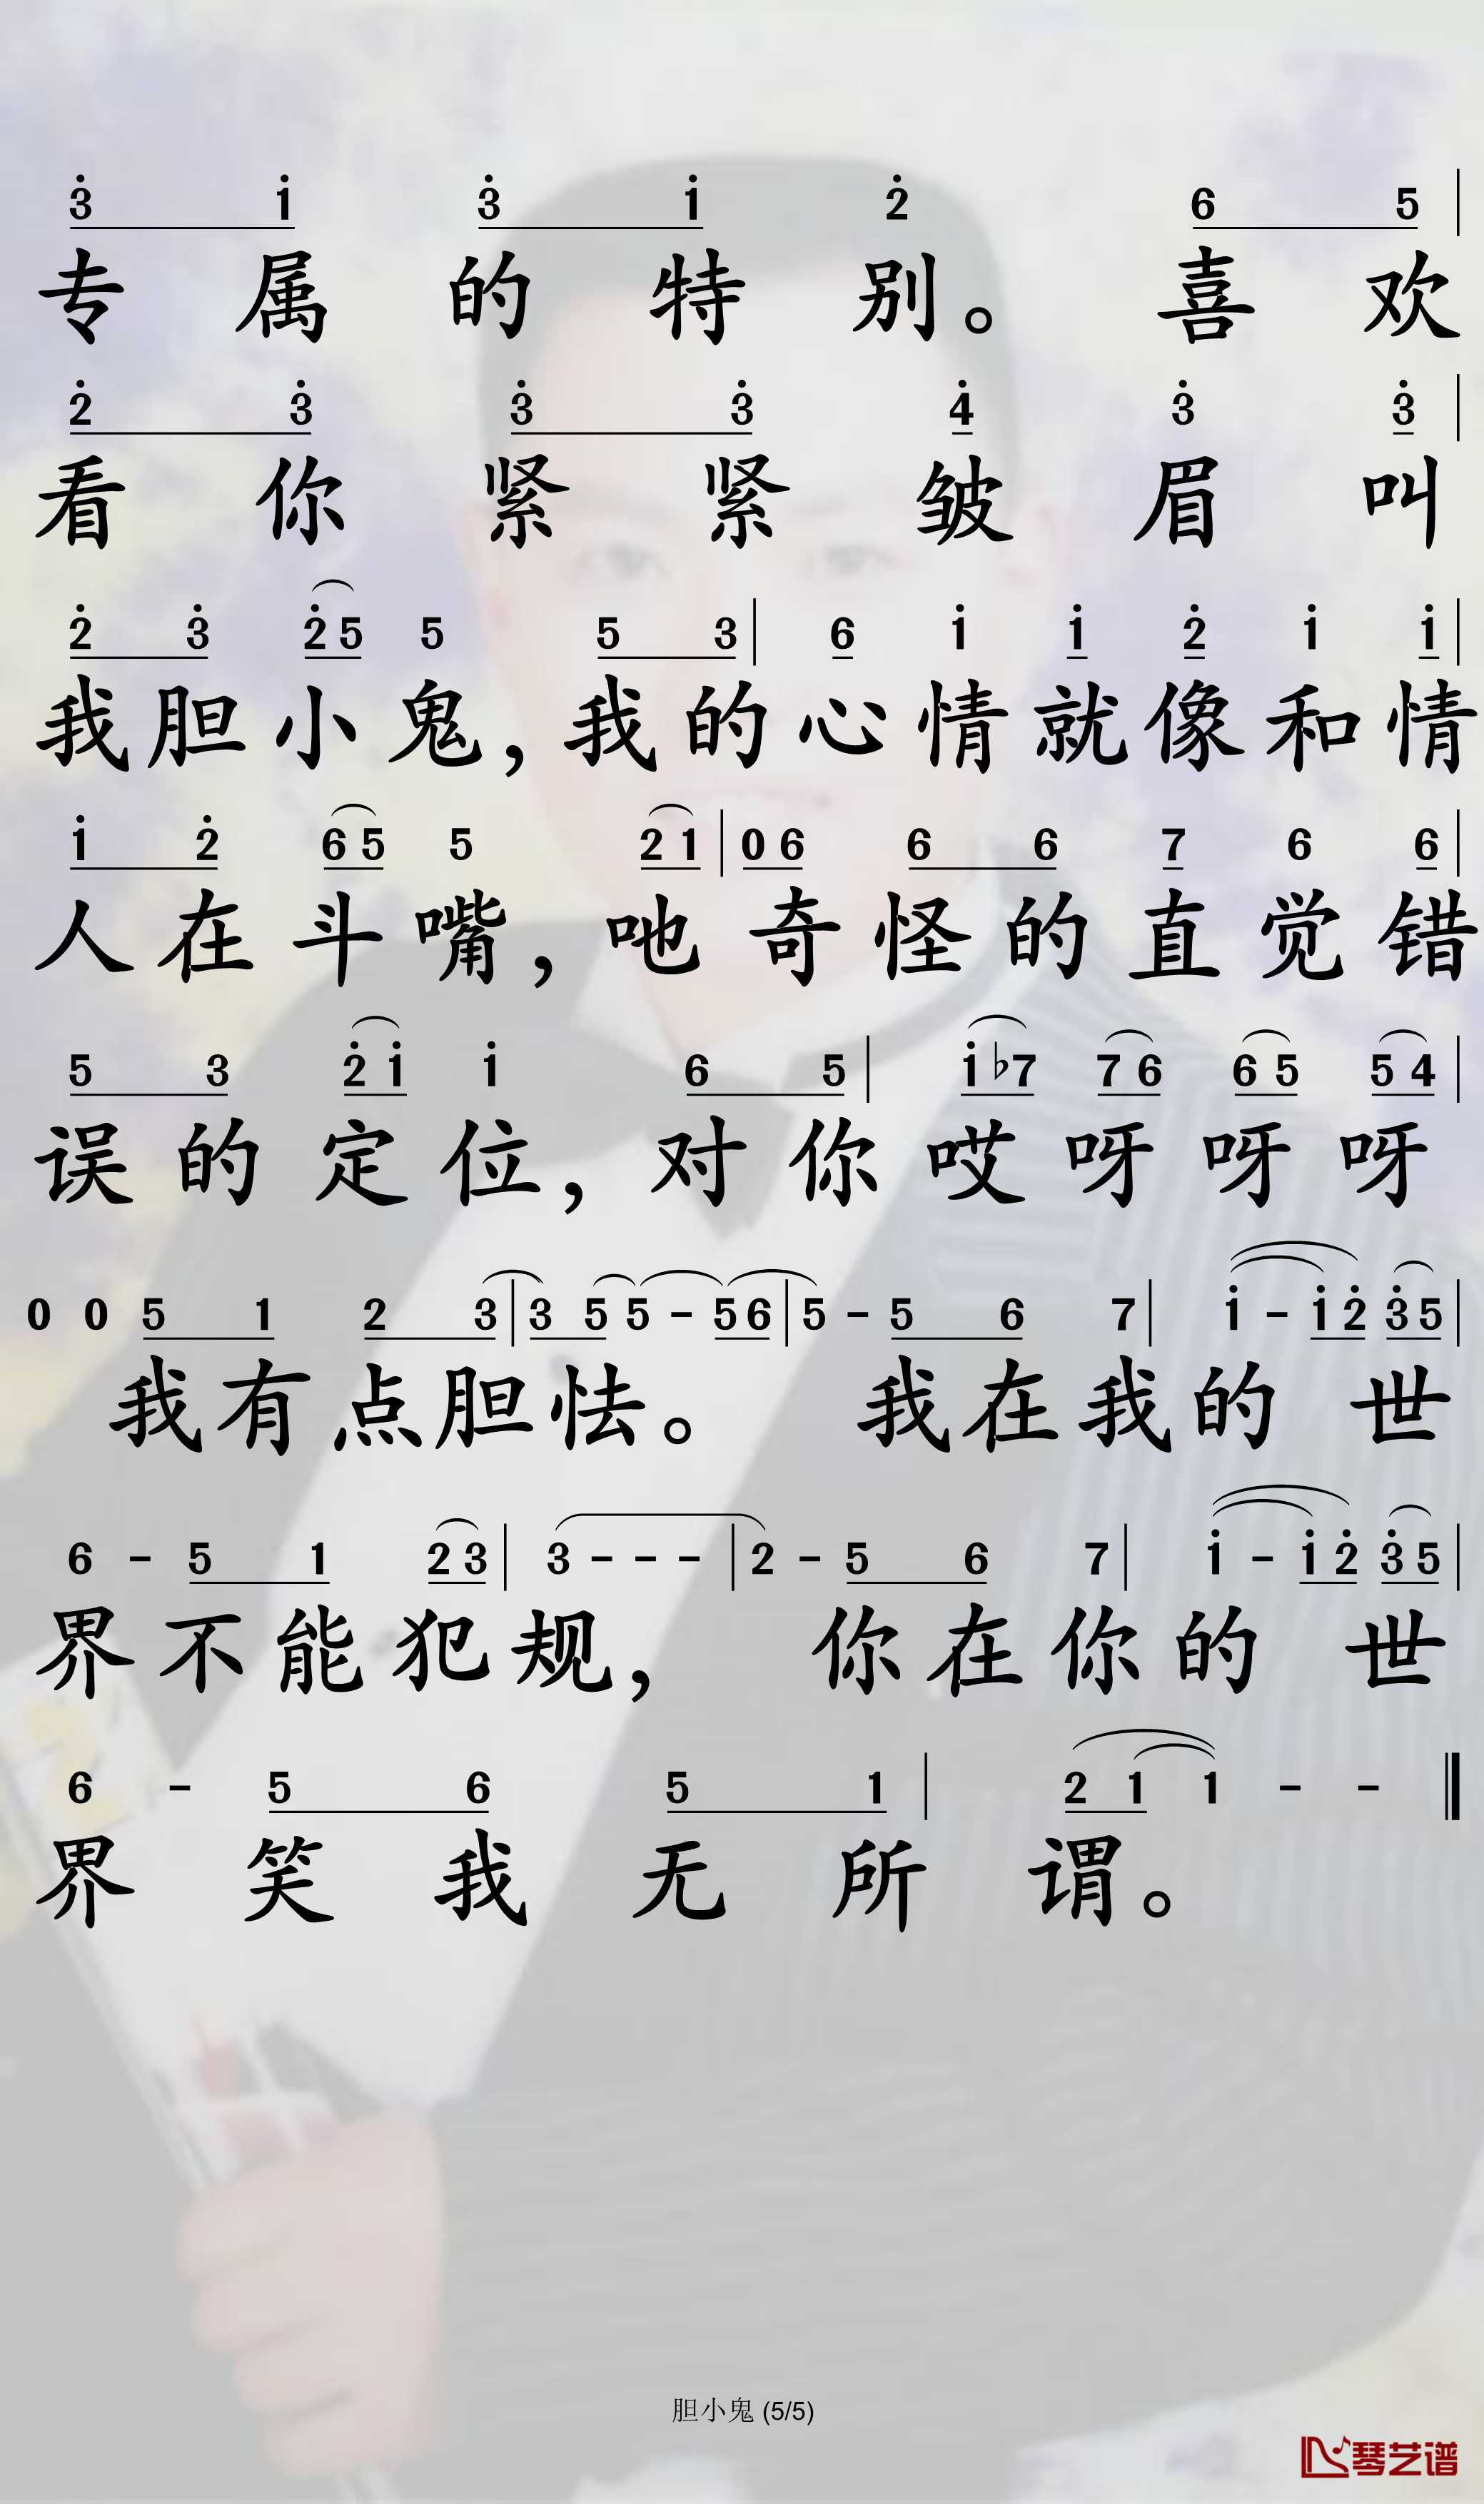 3̇ 1̇ 3̇ 1̇ 2̇ 6 5 |
专属的特别。喜欢
2̇ 3̇ 3̇ 3̇ 4̇ 3̇ 3̇ |
看你紧紧皱眉叫
2̇ 3̇ 2̇ 5 5 5 3 | 6 1̇ 1̇ 2̇ 1̇ 1̇ |
我胆小鬼,我的心情就像和情
1̇ 2̇ 6 5 5 2 1 | 0 6 6 6 7 6 6 |
人在斗嘴,吔奇怪的直觉错
5 3 2̇ 1̇ 1̇ 6 5 | 1̇ ♭7 7 6 6 5 5 4 |
误的定位,对你哎呀呀呀
0 0 5 1 2 3 | 3 5 5 - 5 6 | 5 - 5 6 7 | 1̇ - 1̇ 2̇ 3̇ 5 |
我有点胆怯。我在我的世
6 - 5 1 2 3 | 3 - - - | 2 - 5 6 7 | 1̇ - 1̇ 2̇ 3̇ 5 |
界不能犯规,你在你的世
6 - 5 6 5 1 | 2 1 1 - - ‖
界笑我无所谓。
胆小鬼 (5/5)
琴艺谱